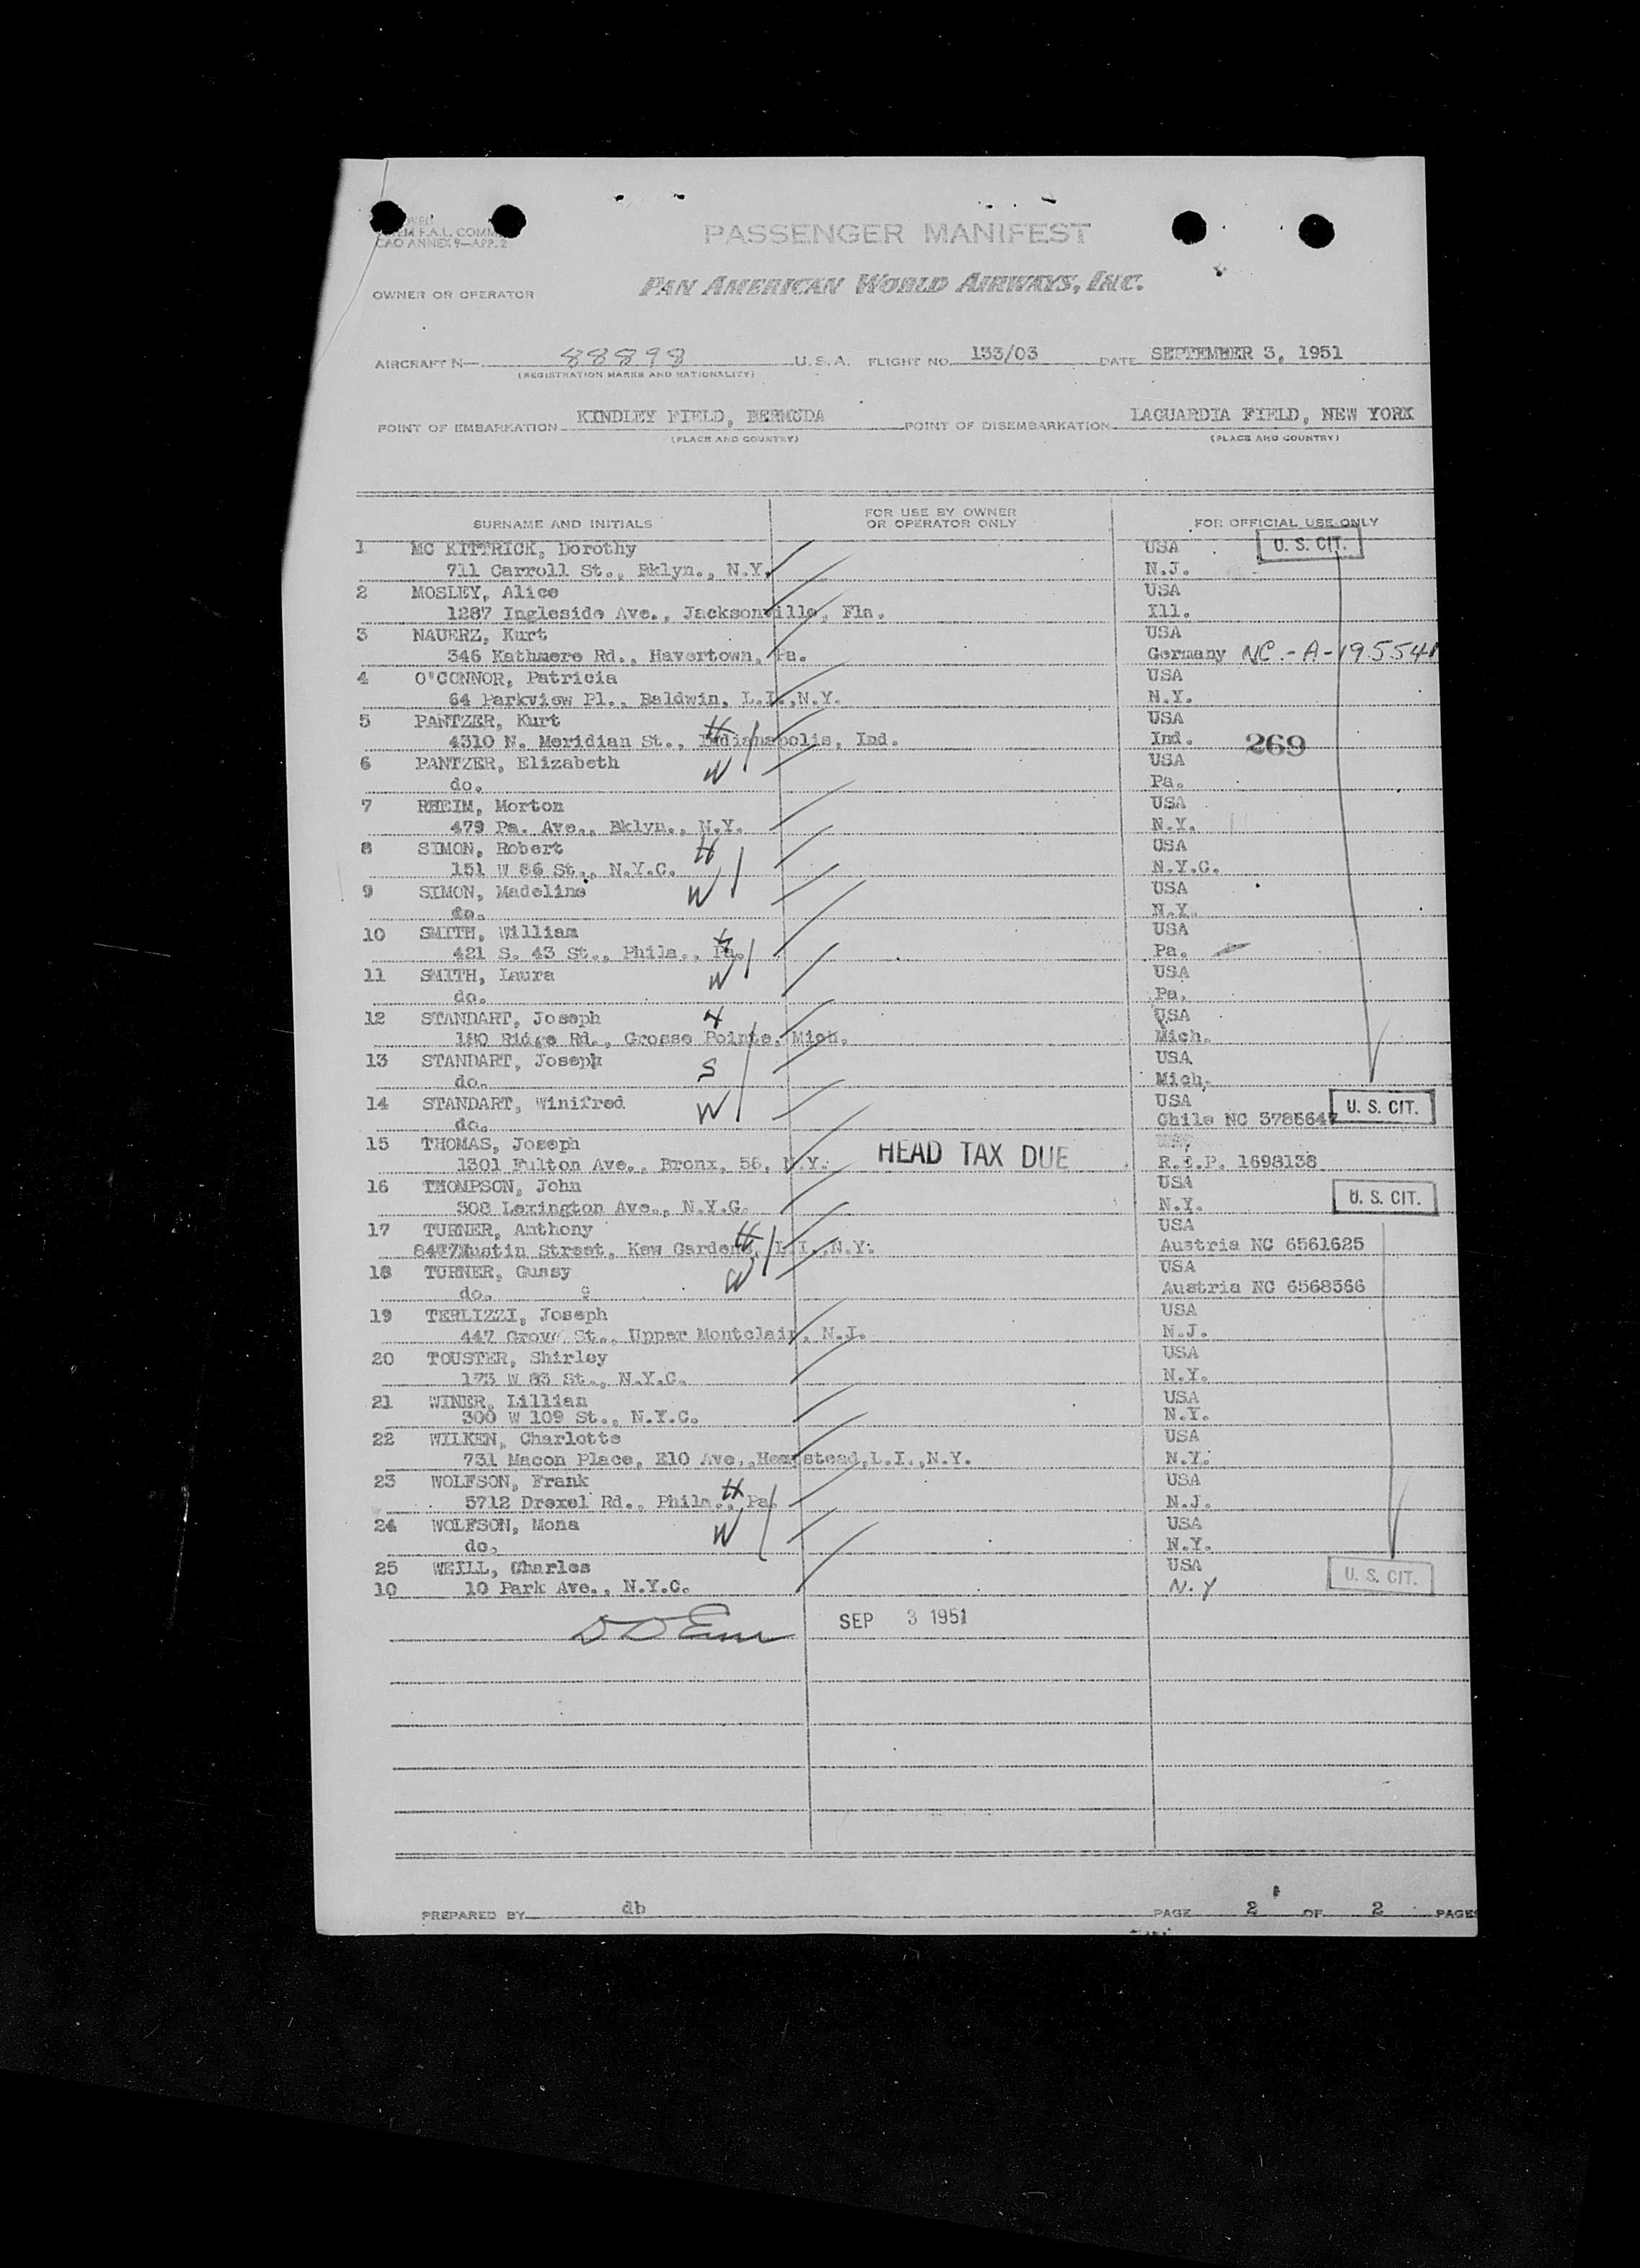 F.A.L. COMM
CAO ANNEX 9—APP. 2
PASSENGER MANIFEST
OWNER OR OPERATOR
PAN AMERICAN WORLD AIRWAYS, INC.
AIRCRAFT N— 88898 U.S.A. FLIGHT NO. 133/03 DATE SEPTEMBER 3, 1951
(REGISTRATION MARKS AND NATIONALITY)
POINT OF EMBARKATION KINDLEY FIELD, BERMUDA POINT OF DISEMBARKATION LAGUARDIA FIELD, NEW YORK
(PLACE AND COUNTRY) (PLACE AND COUNTRY)
SURNAME AND INITIALS FOR USE BY OWNER OR OPERATOR ONLY FOR OFFICIAL USE ONLY
1 MC KITTRICK, Dorothy USA U. S. CIT.
711 Carroll St., Bklyn., N.Y. N.J.
2 MOSLEY, Alice USA
1287 Ingleside Ave., Jacksonville, Fla. Ill.
3 NAUERZ, Kurt USA
346 Kathmere Rd., Havertown, Pa. Germany NC.-A-195541
4 O'CONNOR, Patricia USA
64 Parkview Pl., Baldwin, L.I.,N.Y. N.Y.
5 PANTZER, Kurt H USA
4310 N. Meridian St., Indianapolis, Ind. Ind. 269
6 PANTZER, Elizabeth W USA
do. Pa.
7 RHEIM, Morton USA
479 Pa. Ave., Bklyn., N.Y. N.Y.
8 SIMON, Robert H USA
151 W 86 St., N.Y.C. N.Y.C.
9 SIMON, Madeline W USA
do. N.Y.
10 SMITH, William H USA
421 S. 43 St., Phila., Pa. Pa.
11 SMITH, Laura W USA
do. Pa.
12 STANDART, Joseph H USA
180 Ridge Rd., Grosse Pointe, Mich. Mich.
13 STANDART, Joseph S USA
do. Mich.
14 STANDART, Winifred W USA
do. Chile NC 3785647 U. S. CIT.
15 THOMAS, Joseph
1301 Fulton Ave., Bronx, 56, N.Y. HEAD TAX DUE R.E.P. 1698138
16 THOMPSON, John USA
308 Lexington Ave., N.Y.C. N.Y. U. S. CIT.
17 TURNER, Anthony H USA
8427Austin Street, Kew Gardens, L.I.,N.Y. Austria NC 6561625
18 TURNER, Gussy W USA
do. Austria NC 6568566
19 TERLIZZI, Joseph USA
447 Grove St., Upper Montclair, N.J. N.J.
20 TOUSTER, Shirley USA
173 W 83 St., N.Y.C. N.Y.
21 WINER, Lillian USA
300 W 109 St., N.Y.C. N.Y.
22 WILKEN, Charlotte USA
731 Macon Place, E10 Ave.,Hempstead,L.I.,N.Y. N.Y.
23 WOLFSON, Frank H USA
5712 Drexel Rd., Phila., Pa. N.J.
24 WOLFSON, Mona W USA
do. N.Y.
25 WEILL, Charles USA
10 10 Park Ave., N.Y.C. N.Y U. S. CIT.
SEP 3 1951
PREPARED BY db PAGE 2 OF 2 PAGES